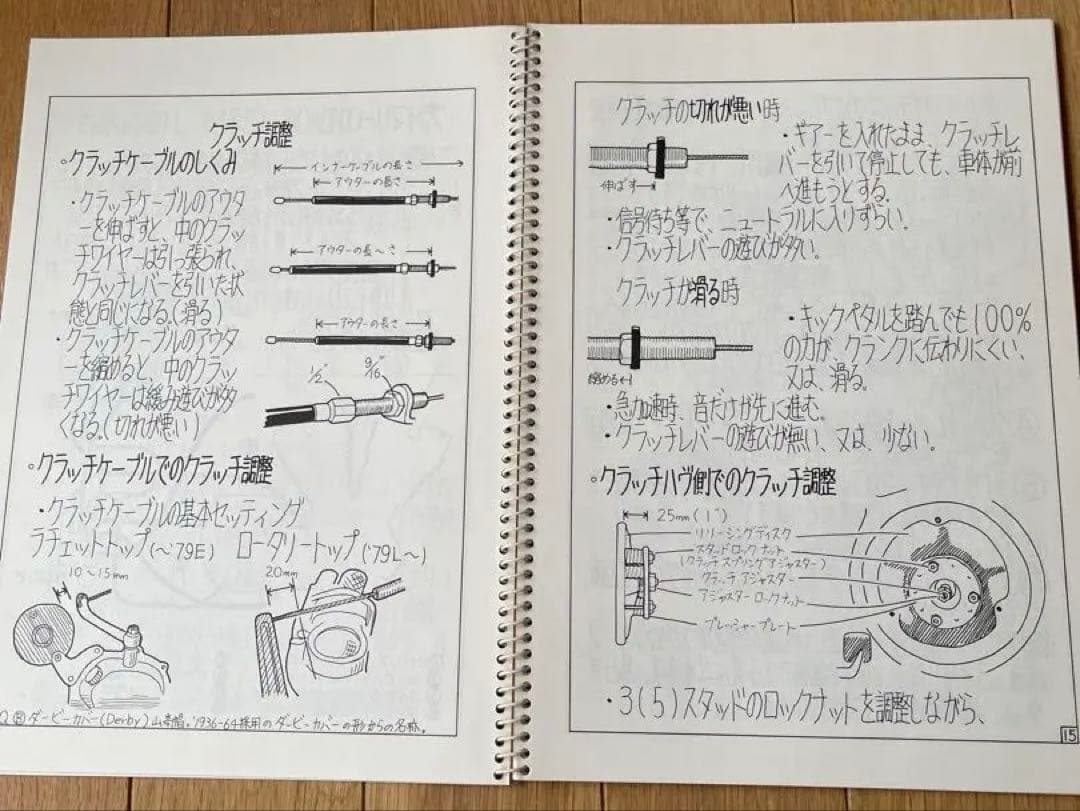 クラッチ調整
クラッチケーブルのしくみ
・クラッチケーブルのアウタ
ーを伸ばすと、中のクラッ
チワイヤーは引っ張られ、
クラッチレバーを引いた状
態と同じになる。(滑る)
・クラッチケーブルのアウタ
ーを縮めると、中のクラッ
チワイヤーは緩み遊びが多
くなる。(切れが悪い)
インナーケーブルの長さ
アウターの長さ
アウターの長〜さ
アウターの長さ
1/2"
9/16"
クラッチケーブルでのクラッチ調整
・クラッチケーブルの基本セッティング
ラチェットトップ(〜'79E) ロータリートップ('79L〜)
10〜15mm
20mm
ダービーカバー(Derby)山高帽。1936-64採用のダービーカバーの形からの名称。
クラッチの切れが悪い時
伸ばす
・ギアーを入れたまま、クラッチレ
バーを引いて停止しても、車体が前
へ進もうとする。
・信号待ち等で、ニュートラルに入りずらい。
・クラッチレバーの遊びが多い。
クラッチが滑る時
縮める
・キックペダルを踏んでも100%
の力が、クランクに伝わりにくい、
又は、滑る。
・急加速時、音だけが先に進む。
・クラッチレバーの遊びが無い、又は、少ない。
クラッチハヴ側でのクラッチ調整
25mm(1")
リリーシングディスク
スタッドロックナット
(クラッチスプリングアジャスター)
クラッチアジャスター
アジャスターロックナット
プレッシャープレート
・3(5)スタッドのロックナットを調整しながら、
15